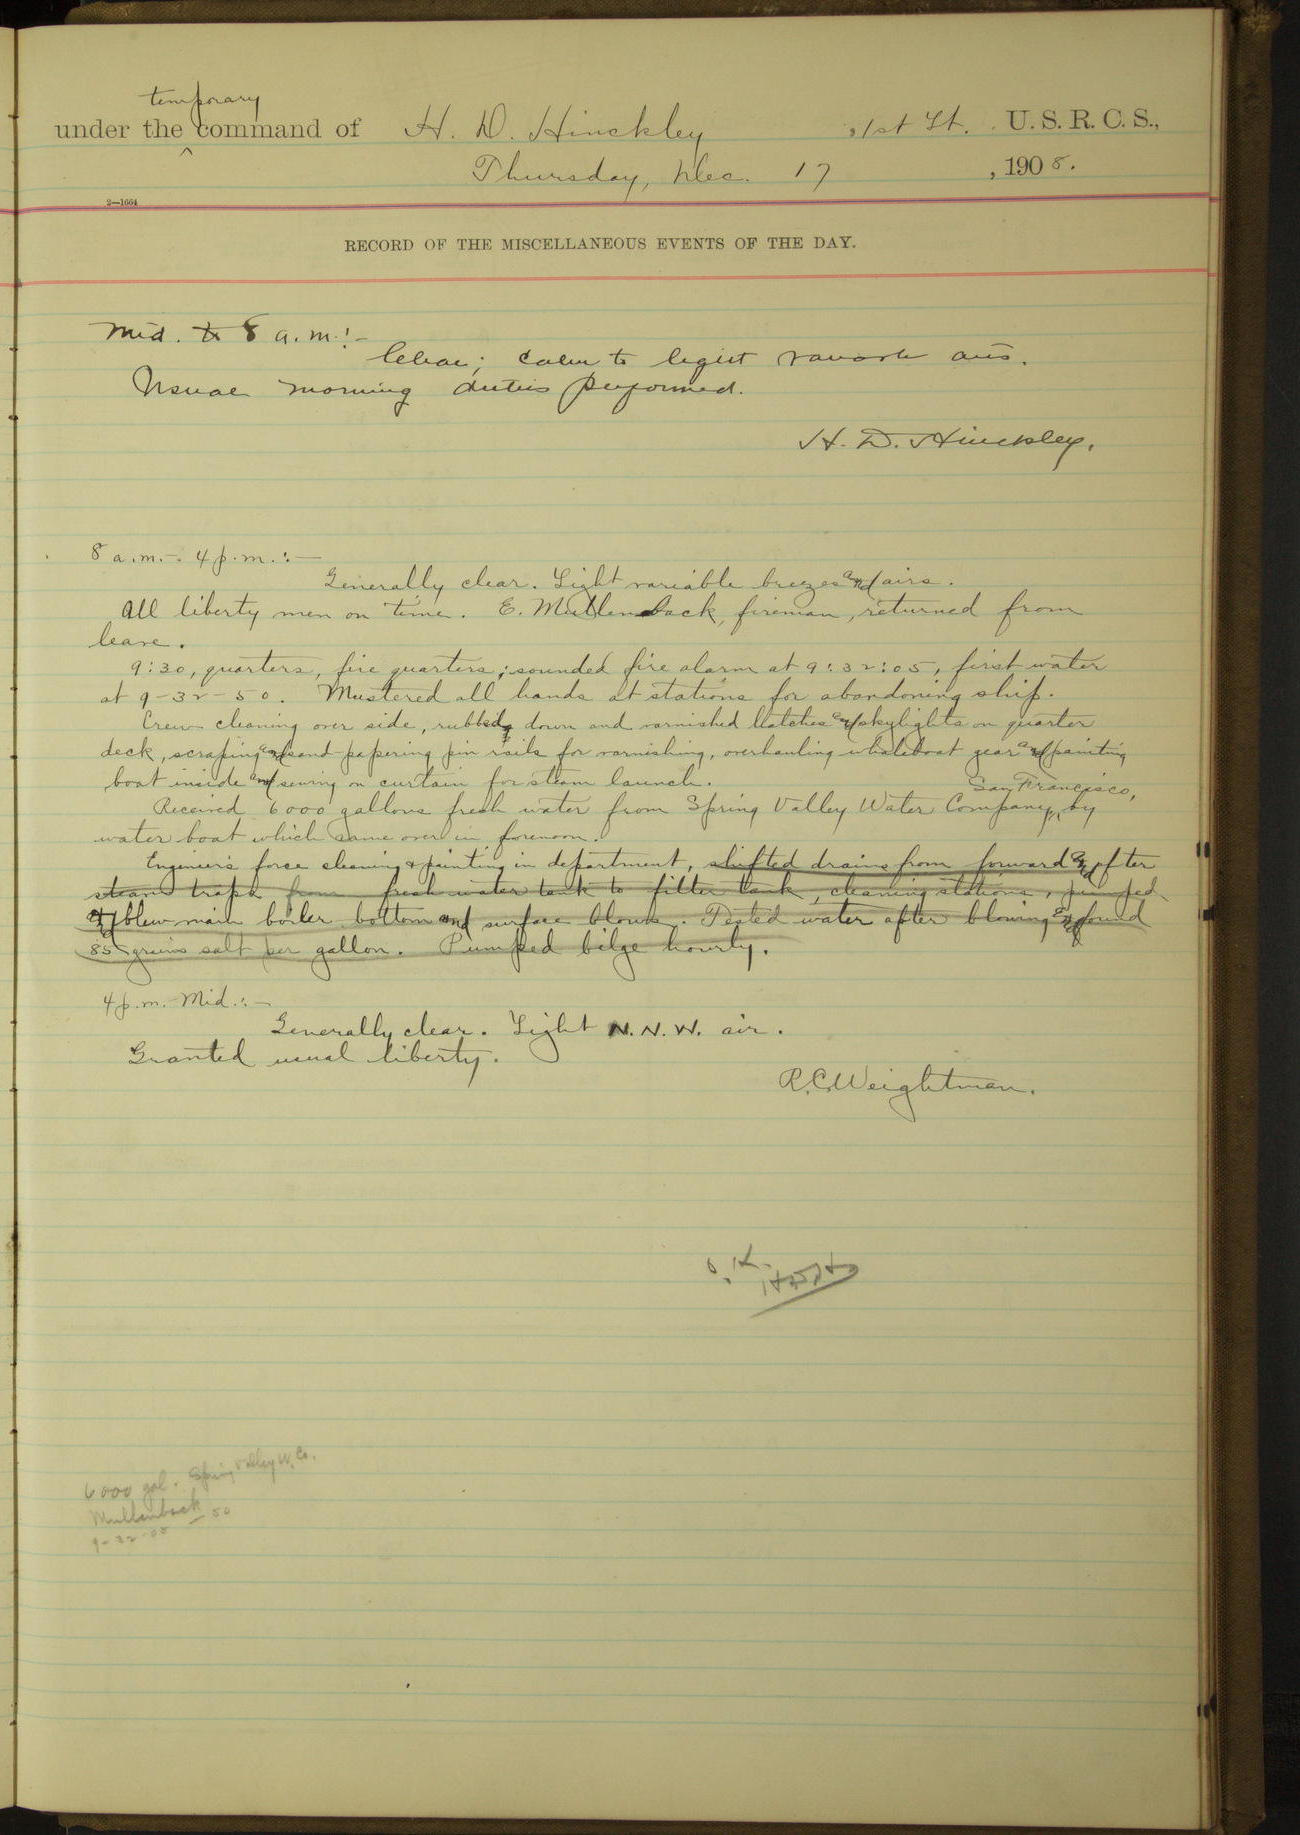 temporary
under the ^ command of H. D. Hinckley, 1st Lt. U. S. R. C. S.,
Thursday, Dec. 17, 1908.
2—1664
RECORD OF THE MISCELLANEOUS EVENTS OF THE DAY.
Mid. to 8 a.m.:-
Clear; calm to light variable airs.
Usual morning duties performed.
H. D. Hinckley.
8 a.m. - 4 p.m.:-
Generally clear. Light variable breezes and airs.
All liberty men on time. E. Mullenback, fireman, returned from
leave.
9:30, quarters, fire quarters; sounded fire alarm at 9:32:05, first water
at 9-32-50. Mustered all hands at stations for abandoning ship.
Crew cleaning over side, rubbed down and varnished hatches and skylights on quarter
deck, scraping and sand-papering pin rails for varnishing, overhauling whaleboat gear and painting
boat inside and sewing on curtain for steam launch.
San Francisco,
Received 6000 gallons fresh water from Spring Valley Water Company, by
water boat which came over in forenoon.
Engineer's force cleaning & painting in department, shifted drains from forward and after
steam traps from fresh water tank to filter tank, cleaning stations, pumped
and blew main boiler bottom and surface blows. Tested water after blowing and found
85 grains salt per gallon. Pumped bilge hourly.
4 p.m. - Mid.:-
Generally clear. Light N. N. W. air.
Granted usual liberty.
R. C. Weightman.
O.K.
HDH
6000 gal. Spring Valley W. Co.
Mullenback
9-32-05 50